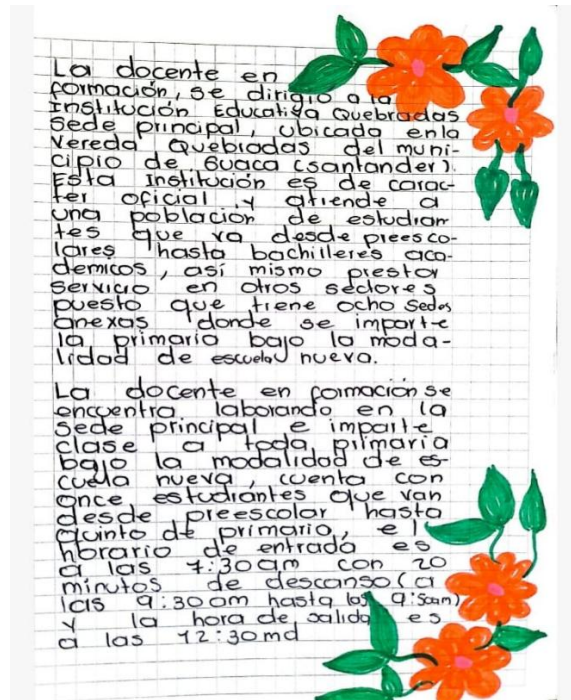 La docente en
formación, se dirigio a la
Institución Educativa Quebradas
Sede principal, ubicada en la
Vereda Quebradas del muni-
cipio de Guaca (santander).
Esta Institución es de carac-
ter oficial y atiende a
una poblacion de estudian
tes que va desde preesco-
lares hasta bachilleres aca-
demicos, así mismo prestar
servicio en otros sectores
puesto que tiene ocho sedes
anexas donde se imparte
la primaria bajo la moda-
lidad de escuela nueva.
La docente en formación se
encuentra laborando en la
sede principal e imparte
clase a toda primaria
bajo la modalidad de es-
cuela nueva, cuenta con
once estudiantes que van
desde preescolar hasta
quinto de primaria, el
horario de entrada es
a las 7:30am con 20
minutos de descanso (a
las 9:30am hasta las 9:50am)
y la hora de salida es
a las 12:30md